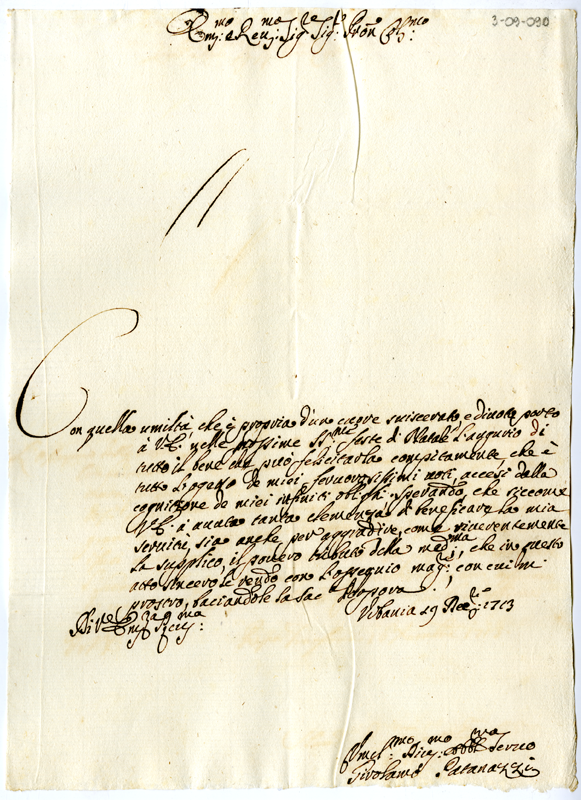 3-09-090
Em:mo e Rev:mo Sig:re Sig:r Pron Col:mo
Con quella umiltà, che è propria d'un cuore sviscerato, e divoto porto
à V.E. nelle prossime SS.me feste di Natale l'augurio di
tutto il bene che può felicitarla compitamente, che è
tutto l'oggetto de miei fervorosissimi voti, accesi dalla
cognizione de miei infiniti oblighi. Sperando, che siccome
V.E. à avuta tanta clemenza di beneficare la mia
servitù, sia anche per aggradire, come riverentemente
la supplico, il povero tributo della med:ma, che in questo
atto sincero le rendo con l'ossequio mag:re, con cui m'
prostro, baciandole la Sac:a Porpora.
Urbania 19 Xbre 1713
Di V.E. Rev:ma
Umil:mo Div:mo Obbl:mo Servo
Girolamo Catanazzi